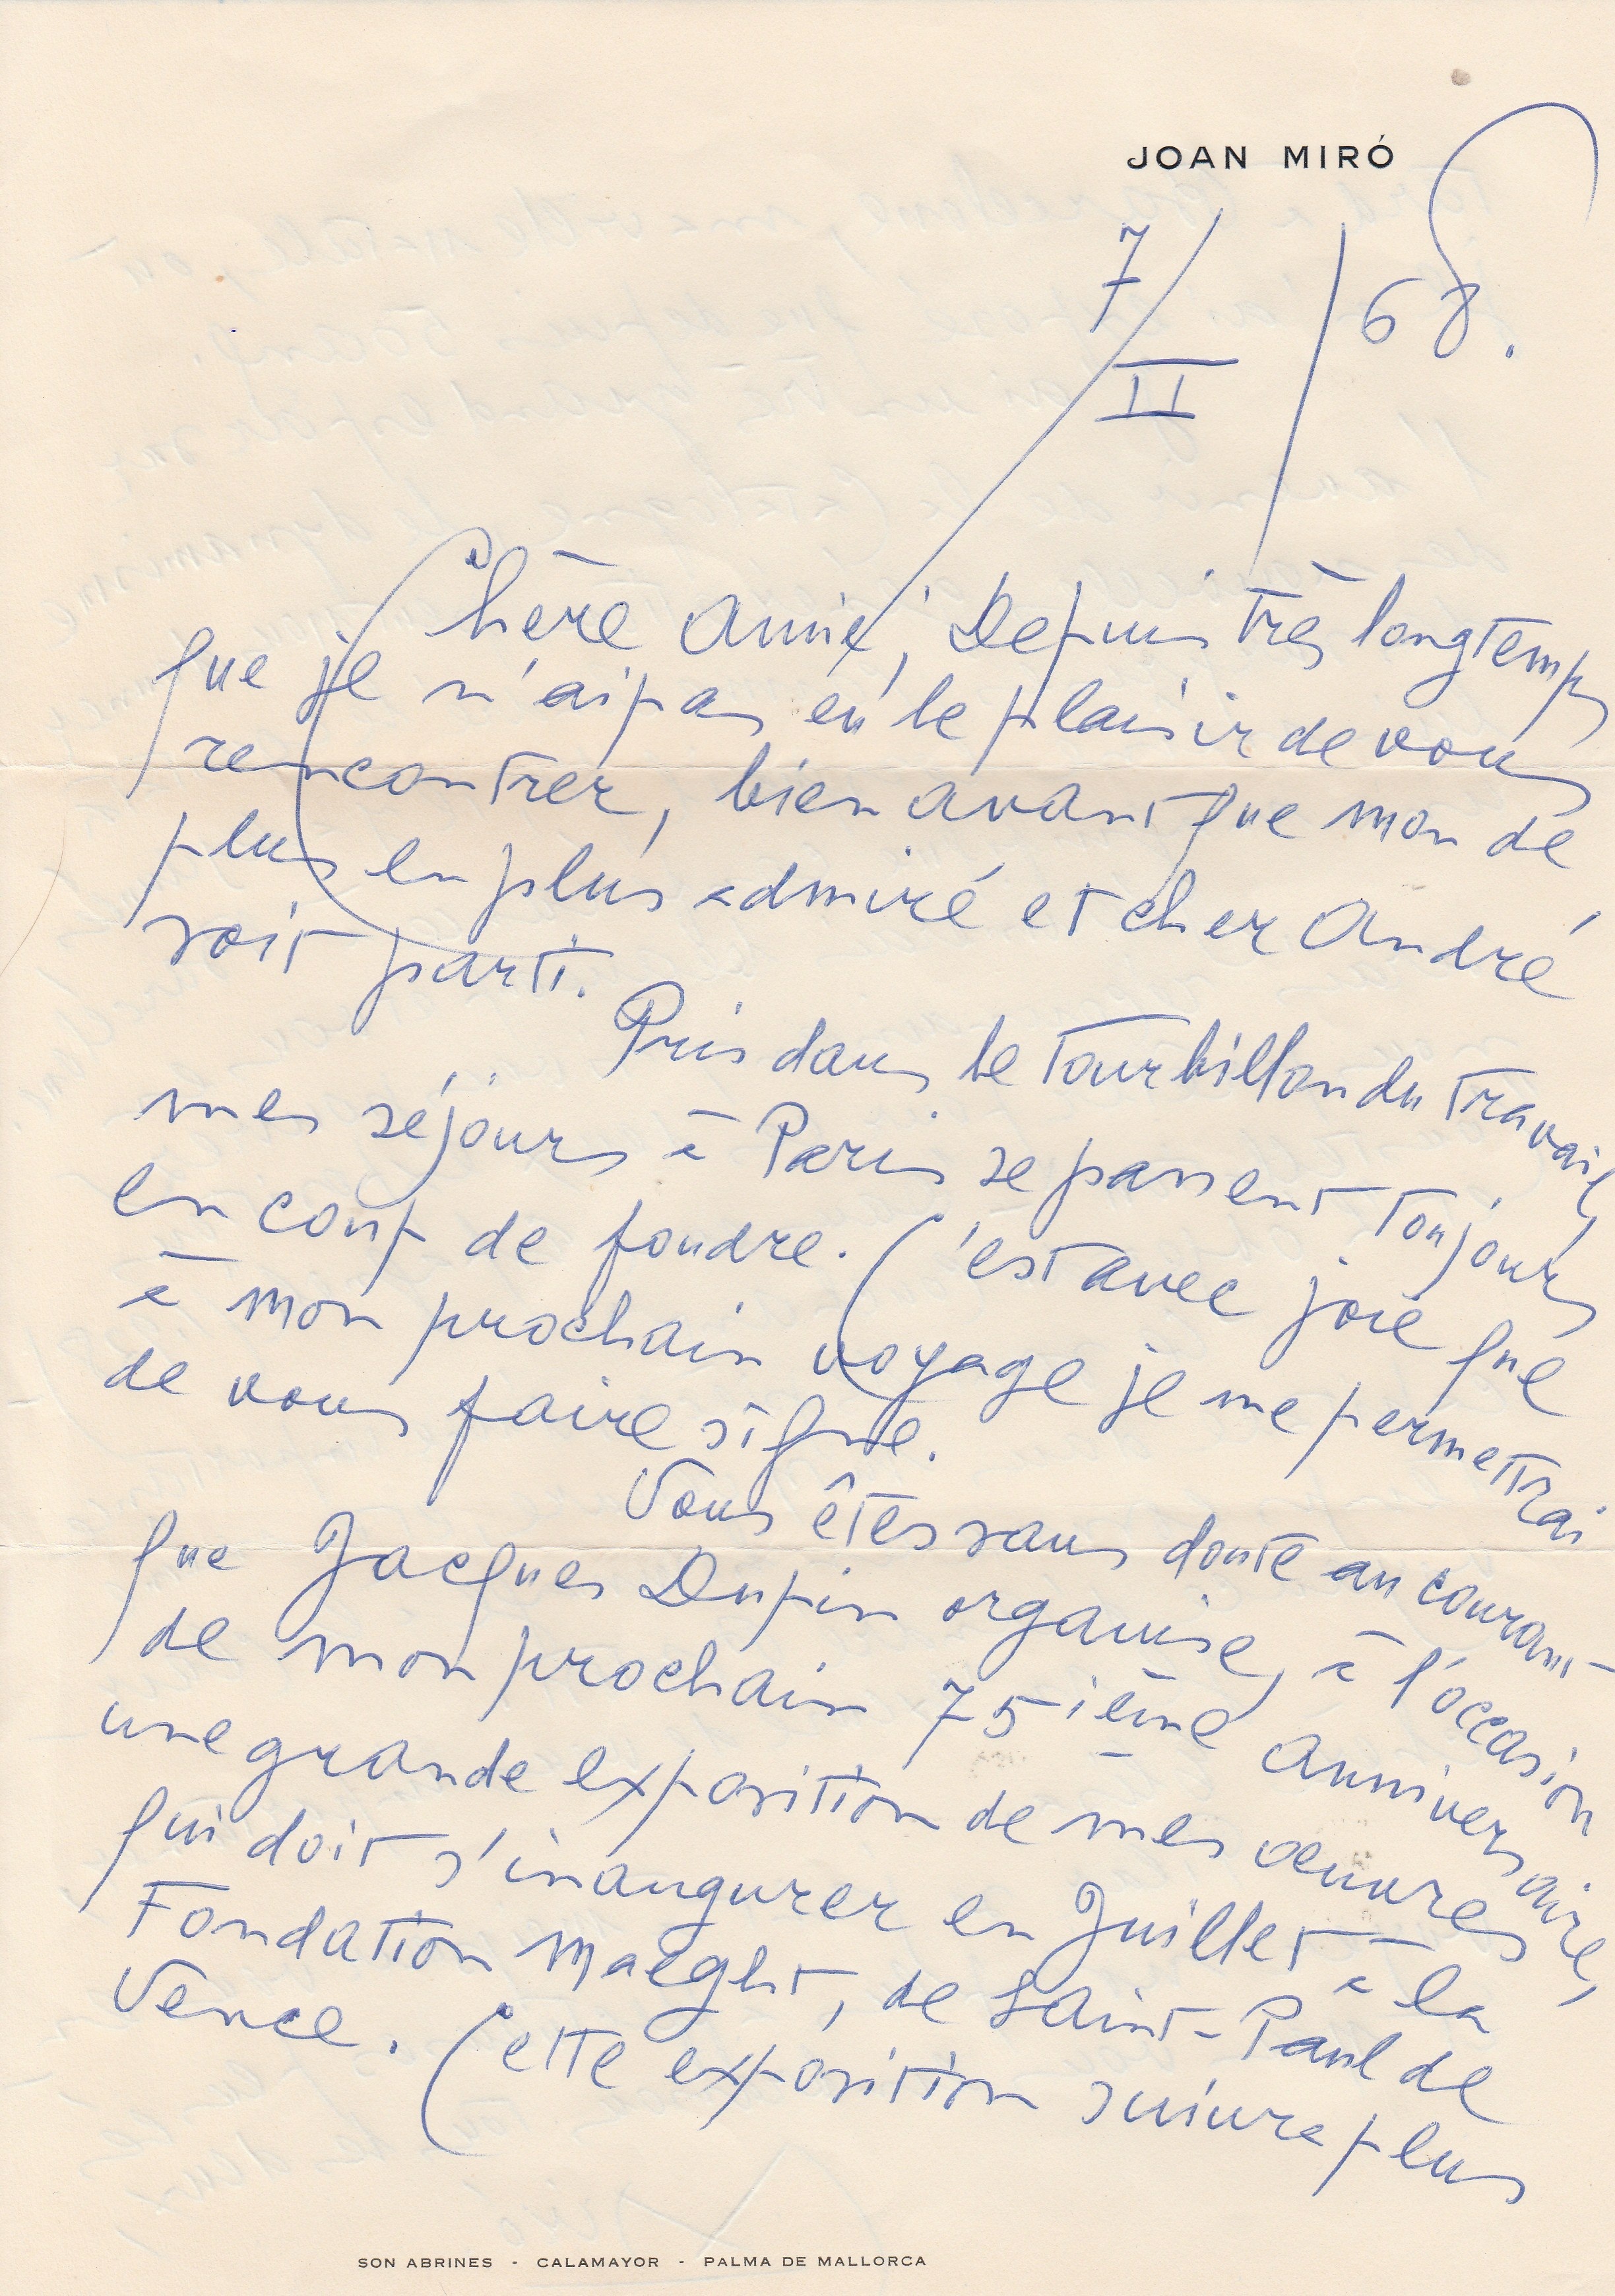 JOAN MIRÓ
7/II/68.
Chère Amie, Depuis très longtemps
que je n'ai pas eu le plaisir de vous
rencontrer, bien avant que mon de
plus en plus admiré et cher André
soit parti.
Pris dans le tourbillon du travail,
mes séjours à Paris se passent toujours
en coup de foudre. C'est avec joie que
à mon prochain voyage je me permettrai
de vous faire signe.
Vous êtes sans doute au courant
que Jacques Dupin organise, à l'occasion
de mon prochain 75ième anniversaire,
une grande exposition de mes oeuvres
qui doit s'inaugurer en Juillet à la
Fondation Maeght, de Saint-Paul de
Vence. Cette exposition suivra plus
SON ABRINES - CALAMAYOR - PALMA DE MALLORCA